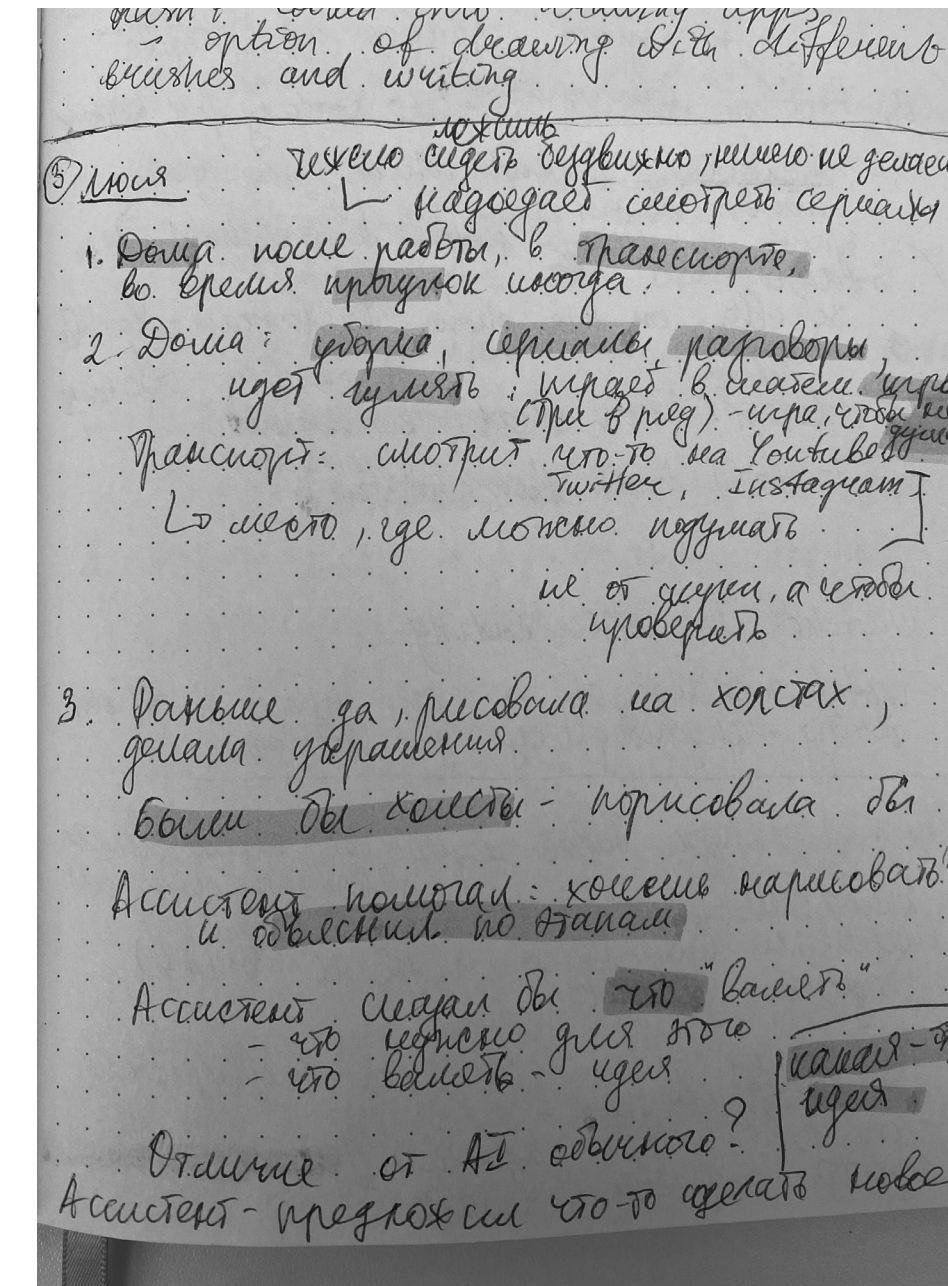 – option of drawing with different
brushes and writing
ложишь
③ Люся тяжело сидеть бездвижно, ничего не делает
надоедает смотреть сериалы
1. Дома после работы, в транспорте,
во время прогулок иногда.
2. Дома: уборка, сериалы, разговоры,
идёт гулять, играет в игры
(три в ряд) – игра, чтобы
Транспорт: смотрит что-то на Youtube
Twitter, Instagram
место, где можно подумать
не от скуки, а чтобы
проверить
3. Раньше да, рисовала на холстах,
делала украшения.
Были бы холсты – порисовала бы
Ассистент помогал: хочешь нарисовать?
и объяснил по этапам
Ассистент сказал бы что "валять"
– что нужно для этого
– что валять – идея
какая-т
идея
Отличие от AI обычного?
Ассистент – предложил что-то сделать новое